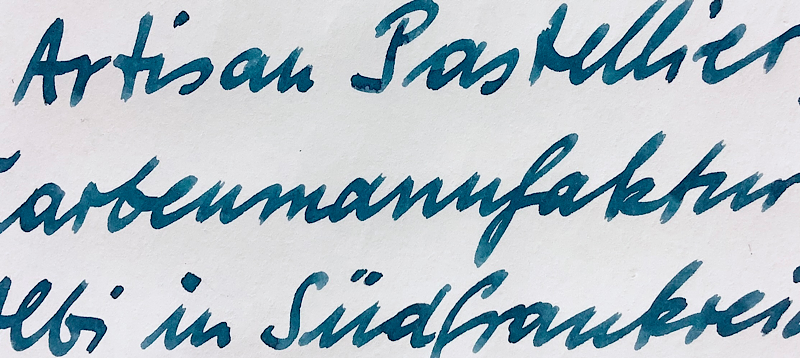 Artisan Pastellier,
Farbenmanufaktur
Albi in Südfrankreic